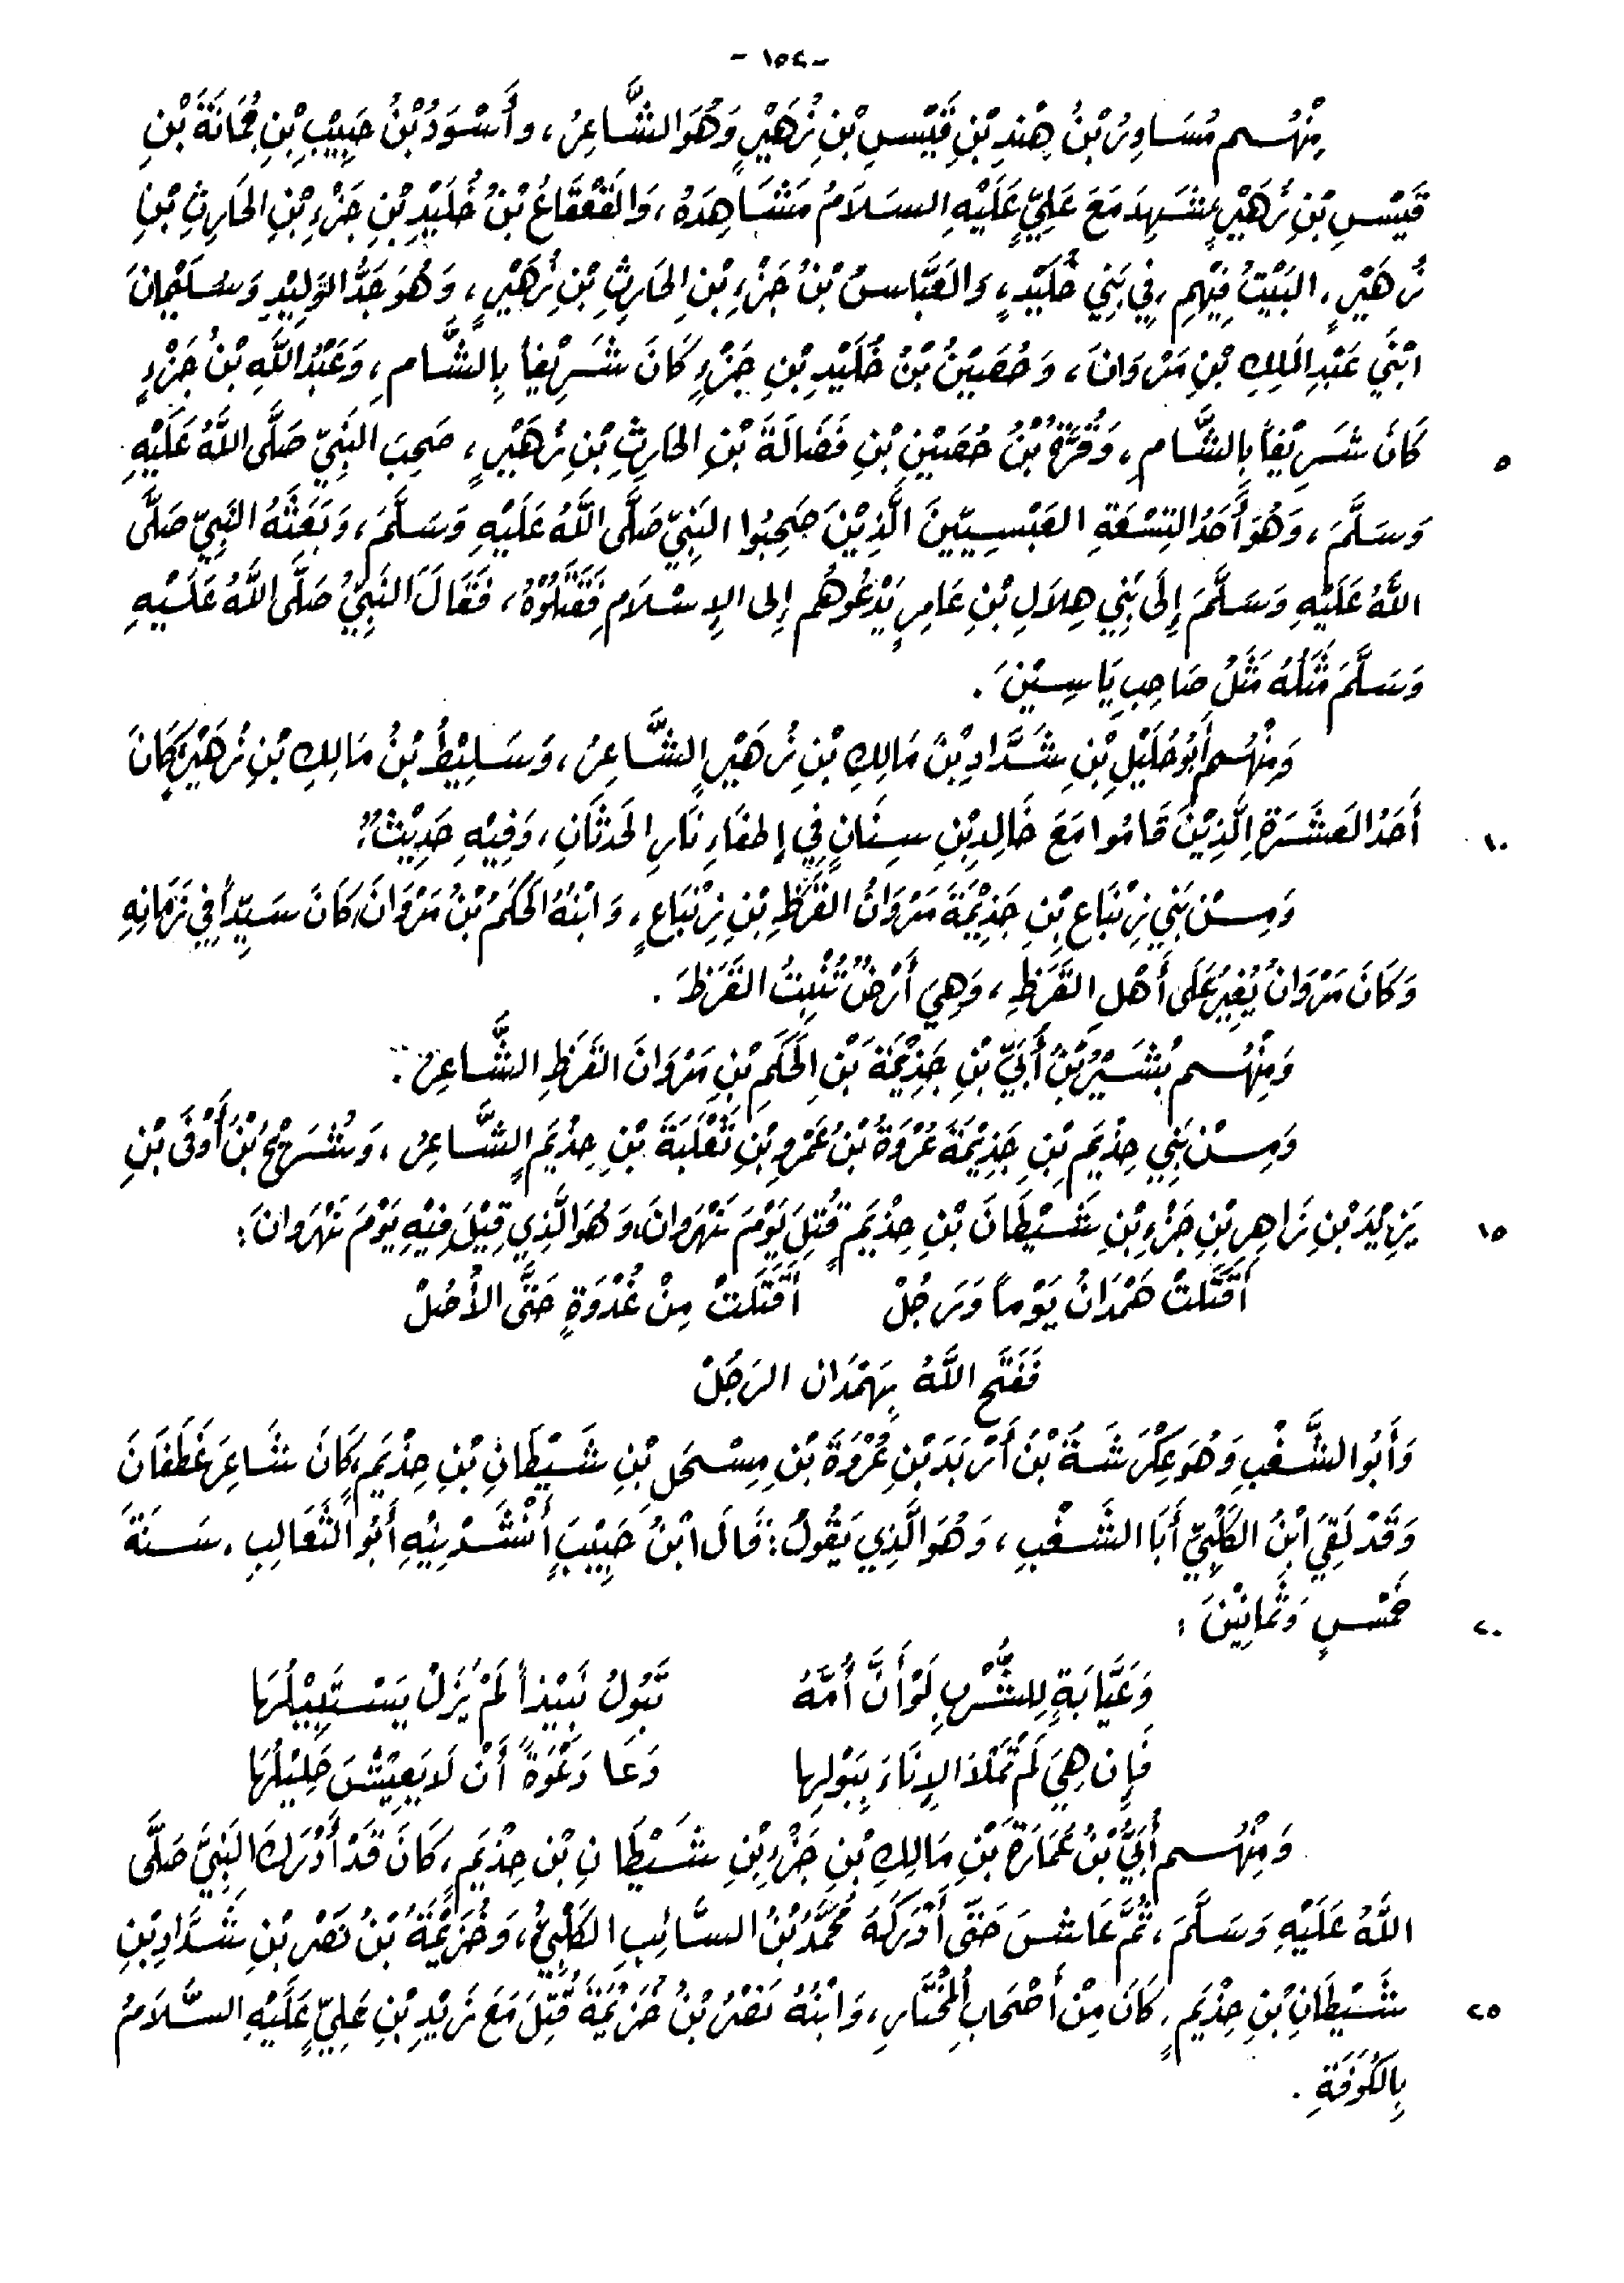 - ١٥٢ -
مِنْهُم مُسَاوِرُ بْنُ هِنْدِ بْنِ قَيْسِ بْنِ زُهَيْرٍ وَهُوَ الشَّاعِرُ، وأَسْوَدُ بْنُ حَبِيْبِ بْنِ جُمَانَةَ بْنِ
قَيْسِ بْنِ زُهَيْرٍ شَهِدَ مَعَ عَلِيٍّ عَلَيْهِ السَلَامُ مَشَاهِدَهُ، وَالقَعْقَاعُ بْنُ خُلَيْدِ بْنِ جَزْءِ بْنِ الحَارِثِ بْنِ
زُهَيْرٍ، البَيْتُ فِيْهِمِ، فِي بَنِي خُلَيْدٍ، وَالعَبَّاسُ بْنُ جَزْءِ بْنِ الحَارِثِ بْنِ زُهَيْرٍ، وَهُوَ جَدُّ الوَلِيْدِ وَسُلَيْمَانَ
ابْنَيْ عَبْدِ المَلِكِ بْنِ مَرْوَانَ، وَحُصَيْنُ بْنُ خُلَيْدِ بْنِ جَزْءٍ كَانَ شَرِيْفاً بِالشَّامِ، وَعَبْدُ اللَّهِ بْنُ جَزْءٍ
كَانَ شَرِيْفاً بِالشَّامِ، وَقُرَّةُ بْنُ حُصَيْنِ بْنِ فَضَالَةَ بْنِ الحَارِثِ بْنِ زُهَيْرٍ، صَحِبَ النَّبِيَّ صَلَّى اللَّهُ عَلَيْهِ ٥
وَسَلَّمَ، وَهُوَ أَحَدُ التِسْعَةِ العَبْسِيِّيْنَ الَّذِيْنَ صَحِبُوا النَبِيَّ صَلَّى اللَّهُ عَلَيْهِ وَسَلَّمَ، وَبَعَثَهُ النَبِيّ صَلَّى
اللَّهُ عَلَيْهِ وَسَلَّمَ إِلَى بَنِي هِلَالِ بْنِ عَامِرٍ يَدْعُوهُم إِلى الإِسْلَامِ فَقَتَلُوْهُ، فَقَالَ النَبِيُّ صَلَّى اللَّهُ عَلَيْهِ
وَسَلَّمَ مَثَلُهُ مَثَلُ صَاحِبِ يَاسِيْنَ.
وَمِنْهُم أَبُو حُلَيْلِ بْنِ شَدَّادِ بْنِ مَالِكِ بْنِ زُهَيْرٍ الشَّاعِرُ، وَسَلِيْطُ بْنُ مَالِكِ بْنِ زُهَيْرٍ كَانَ
أَحَدُ العَشَرَةِ الَّذِيْنَ قَامُوا مَعَ خَالِدِ بْنِ سِنَانٍ فِي إِطفَاءِ نَارِ الحَدَثَانِ، وَفِيْهِ حَدِيْثٌ. ١٠
وَمِنْ بَنِي زِنْبَاعِ بْنِ جَذِيْمَةَ مَرْوَانُ القَرَظِ بْنِ زِنْبَاعٍ، وَابْنُهُ الحَكَمُ بْنُ مَرْوَانَ، كَانَ سَيِّداً فِي زَمَانِهِ
وَكَانَ مَرْوَانُ يُغِيْرُ عَلَى أَهْلِ القَرَظِ، وَهِيَ أَرْضٌ تُنْبِتُ القَرَظَ.
وَمِنْهُم بُشَيْرُ بْنُ أُبَيِّ بْنِ جَذِيْمَةَ بْنِ الحَكَمِ بْنِ مَرْوَانَ القَرَظِ الشَّاعِرُ.
وَمِنْ بَنِي حِذْيَمِ بْنِ جَذِيْمَةَ عُرْوَةُ بْنُ عَمْرِو بْنِ ثَعْلَبَةَ بْنِ حِذْيَمٍ الشَّاعِرُ، وَشُرَيْحُ بْنُ أَوْفَى بْنِ
يَزِيْدَ بْنِ زَاهِرِ بْنِ جَزْءِ بْنِ شَيْطَانَ بْنِ حِذْيَمٍ قُتِلَ يَوْمَ نَهْرَوانَ، وَهُوَ الَّذِي قِيْلَ فِيْهِ يَوْمَ نَهْرَوانَ: ١٥
اقْتَتَلَتْ هَمْدَانُ يَوْماً وَرَجُلْ اقْتَتَلَتْ مِنْ غُدْوَةٍ حَتَّى الأُصُلْ
فَفَتَحَ اللَّهُ بِهَمْدَانَ الرَجُلْ
وَأَبُو الشَّغْبِ وَهُوَ عِكْرَشَةُ بْنُ أَرْبَدَ بْنِ عُرْوَةَ بْنِ مِسْحَلِ بْنِ شَيْطَانِ بْنِ حِذْيَمٍ، كَانَ شَاعِرَ غَطَفَانَ
وَقَدْ لَقِيَ ابْنُ الكَلْبِيِّ أَبَا الشَّغْبِ، وَهُوَ الَّذِي يَقُولُ: قَالَ ابْنُ حَبِيْبَ أَنْشَدْنِيْهِ أَبُو الثَّعَالِبِ. سَنَةَ
خَمْسٍ وَثَمَانِيْنَ: ٢٠
وَعَيَّابَةٍ لِلشُّرْبِ لَوْ أَنَّ أُمَّهُ تَبُولُ نَبِيْذاً لَمْ يَزَلْ يَسْتَبِيْلُهَا
فَإِن هِيَ لَم تَمْلأ الإِنَاءَ بِبَوْلِها دَعَا دَعْوَةً أَنْ لَا يَعِيْشَ حَلِيْلُهَا
وَمِنْهُم أُبَيُّ بْنُ عُمَارَةَ بْنِ مَالِكِ بْنِ جَزْءِ بْنِ شَيْطَانِ بْنِ حِذْيَمٍ، كَانَ قَدْ أَدْرَكَ النَبِيَّ صَلَّى
اللَّهُ عَلَيْهِ وَسَلَّمَ، ثُمَّ عَاشَ حَتَّى أَدْرَكَهَ مُحَمَّدُ بْنُ السَّائِبِ الكَلْبِيُّ، وَخُزَيْمَةُ بْنُ نَصْرِ بْنِ شَدَّادِ بْنِ
شَيْطَانِ بْنِ حِذْيَمٍ، كَانَ مِنْ أَصْحَابِ المُخْتَارِ، وَابْنُهُ نَصْرُ بْنُ خُزَيْمَةَ قُتِلَ مَعَ زَيْدِ بْنِ عَلِيٍّ عَلَيْهِ السَّلَامُ ٢٥
بِالكُوفَةِ.